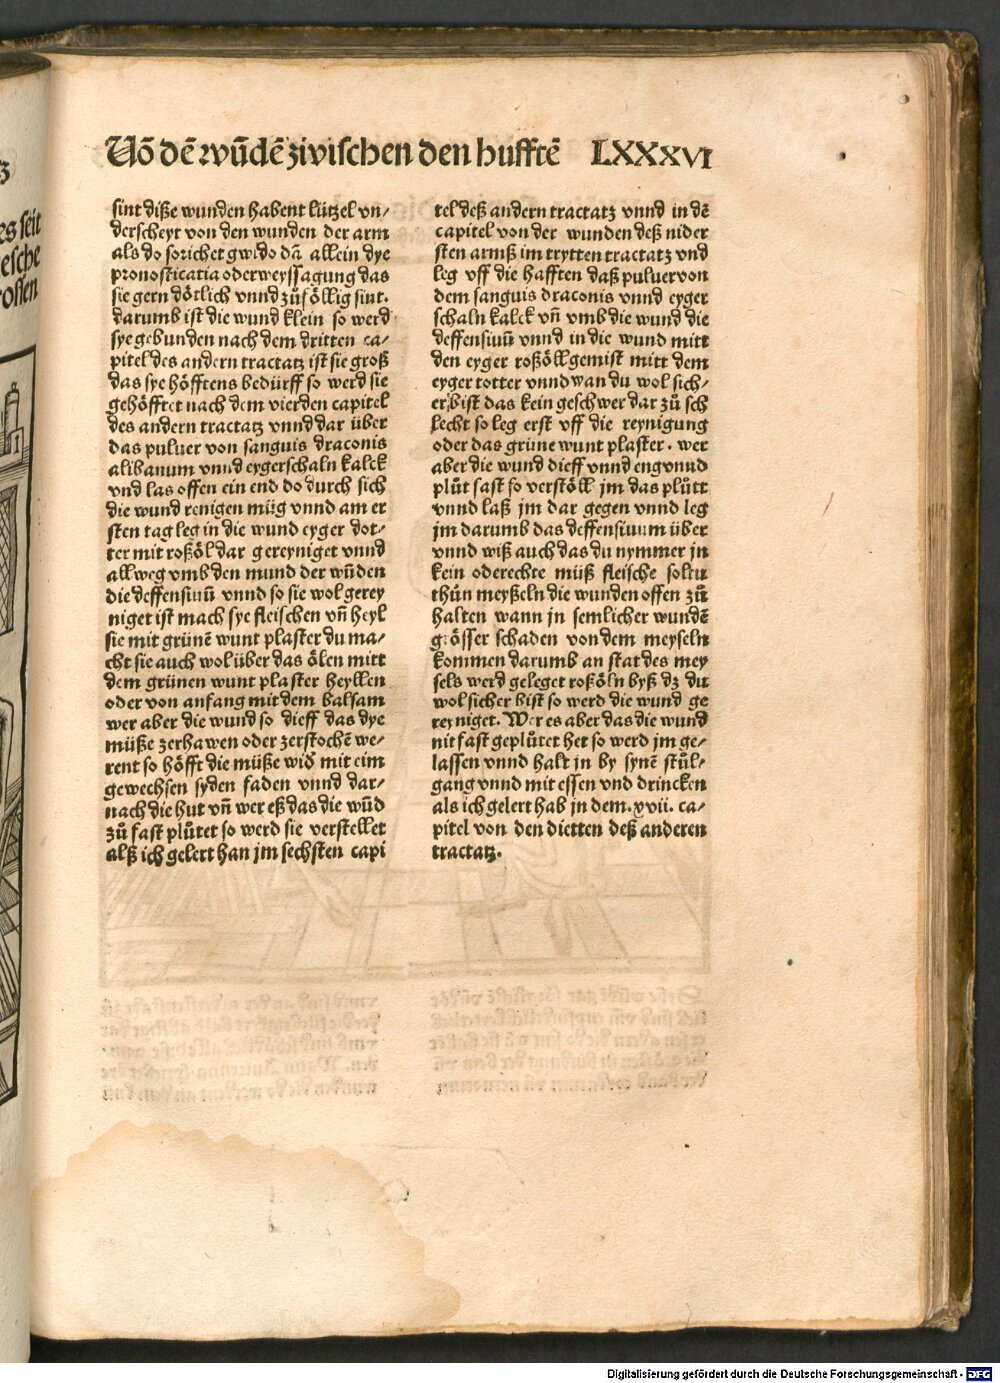 Uō dē wūdē ziwischen den hufftē LXXXVI
sint diße wunden habent lützel vn/
derscheyt von den wunden der arm
als do sprichet gwido dā allein dye
pronosticatia oder weyssagung das
sie gern dötlich vnnd zůföllig sint.
darumb ist die wund klein so werd
sye gebunden nach dem dritten ca/
pitel des andern tractatz ist sie groß
das sye höfftens bedürff so werd sie
gehöfftet nach dem vierden capitel
des andern tractatz vnnd dar über
das puluer von sanguis draconis
alibanum vnnd eygerschaln kalck
vnd las offen ein end do durch sich
die wund renigen müg vnnd am er
sten tag leg in die wund eyger dot/
ter mit roßöl dar gereyniget vnnd
allweg vmb den mund der wūden
die deffensiuū vnnd so sie wol gerey
niget ist mach sye fleischen vn̄ heyl
sie mit grünē wunt plaster du ma/
cht sie auch wol über das ölen mitt
dem grünen wunt plaster heyllen
oder von anfang mit dem balsam
wer aber die wund so dieff das dye
müße zerhawen oder zerstochē we/
rent so höfft die müße wid̄ mit eim
gewechsen syden faden vnnd dar/
nach die hut vn̄ wer eß das die wūd
zů fast plůtet so werd sie verstellet
alß ich gelert han jm sechsten capi
tel deß andern tractatz vnnd in dē
capitel von der wunden deß nider
sten armß im trytten tractatz vnd
leg vff die hafften daß puluer von
dem sanguis draconis vnnd eyger
schaln kalck vn̄ vmb die wund die
deffensiuū vnnd in die wund mitt
den eyger roßöll gemist mitt dem
eyger totter vnnd wan du wol sich/
er bist das kein geschwer dar zů sch
lecht so leg erst vff die reynigung
oder das grüne wunt plaster. wer
aber die wund dieff vnnd eng vnnd
plůt fast so verstöll jm das plůtt
vnnd laß jm dar gegen vnnd leg
jm darumb das deffensiuum über
vnnd wiß auch das du nymmer jn
kein oderechte müß fleische soltu
thůn meyßeln die wunden offen zů
halten wann in semlicher wundē
grösser schaden von dem meyseln
kommen darumb an stat des mey
sels werd geleget roßöln byß dz du
wol sicher bist so werd die wund ge
reyniget. Wer es aber das die wund
nit fast geplůtet het so werd jm ge/
lassen vnnd halt jn by synē stůl/
gang vnnd mit essen vnd drincken
als ich gelert hab in dem .xvii. ca/
pitel von den dietten deß anderen
tractatz.
Digitalisierung gefördert durch die Deutsche Forschungsgemeinschaft - DFG